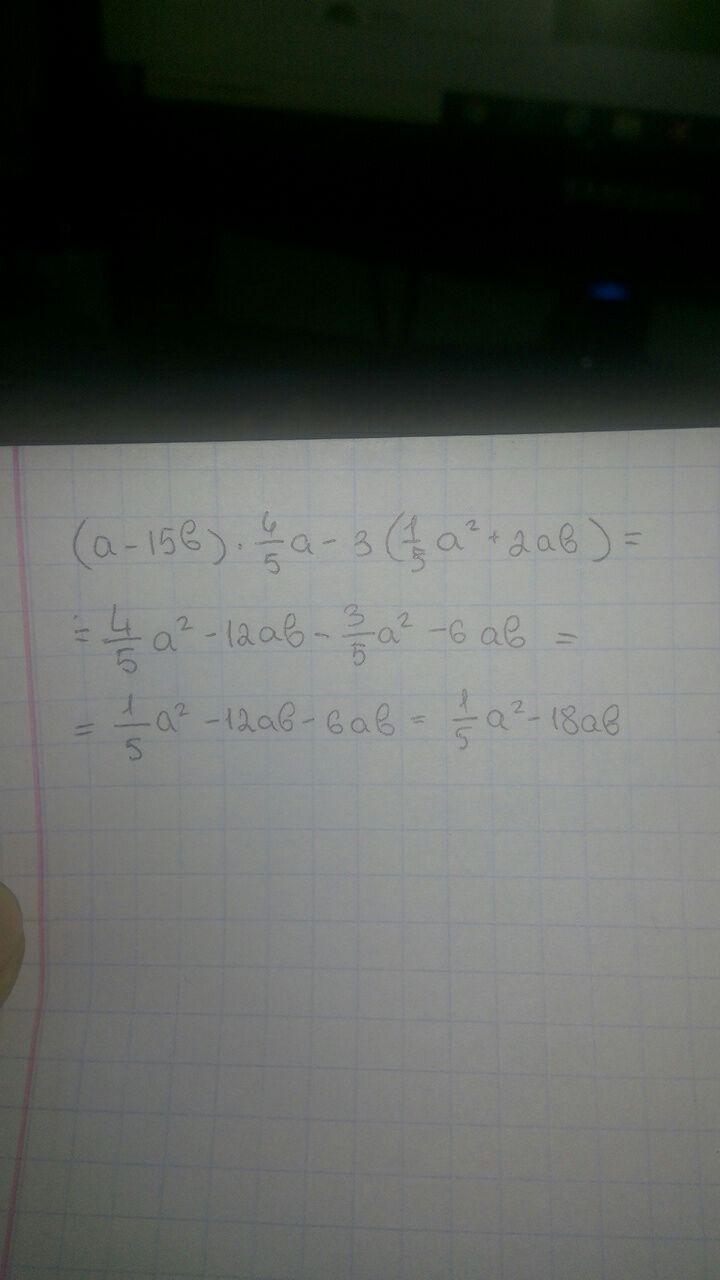 (a - 15в) · 4/5 a - 3 (1/5 a² + 2aв) =
= 4/5 a² - 12aв - 3/5 a² - 6aв =
= 1/5 a² - 12aв - 6aв = 1/5 a² - 18aв